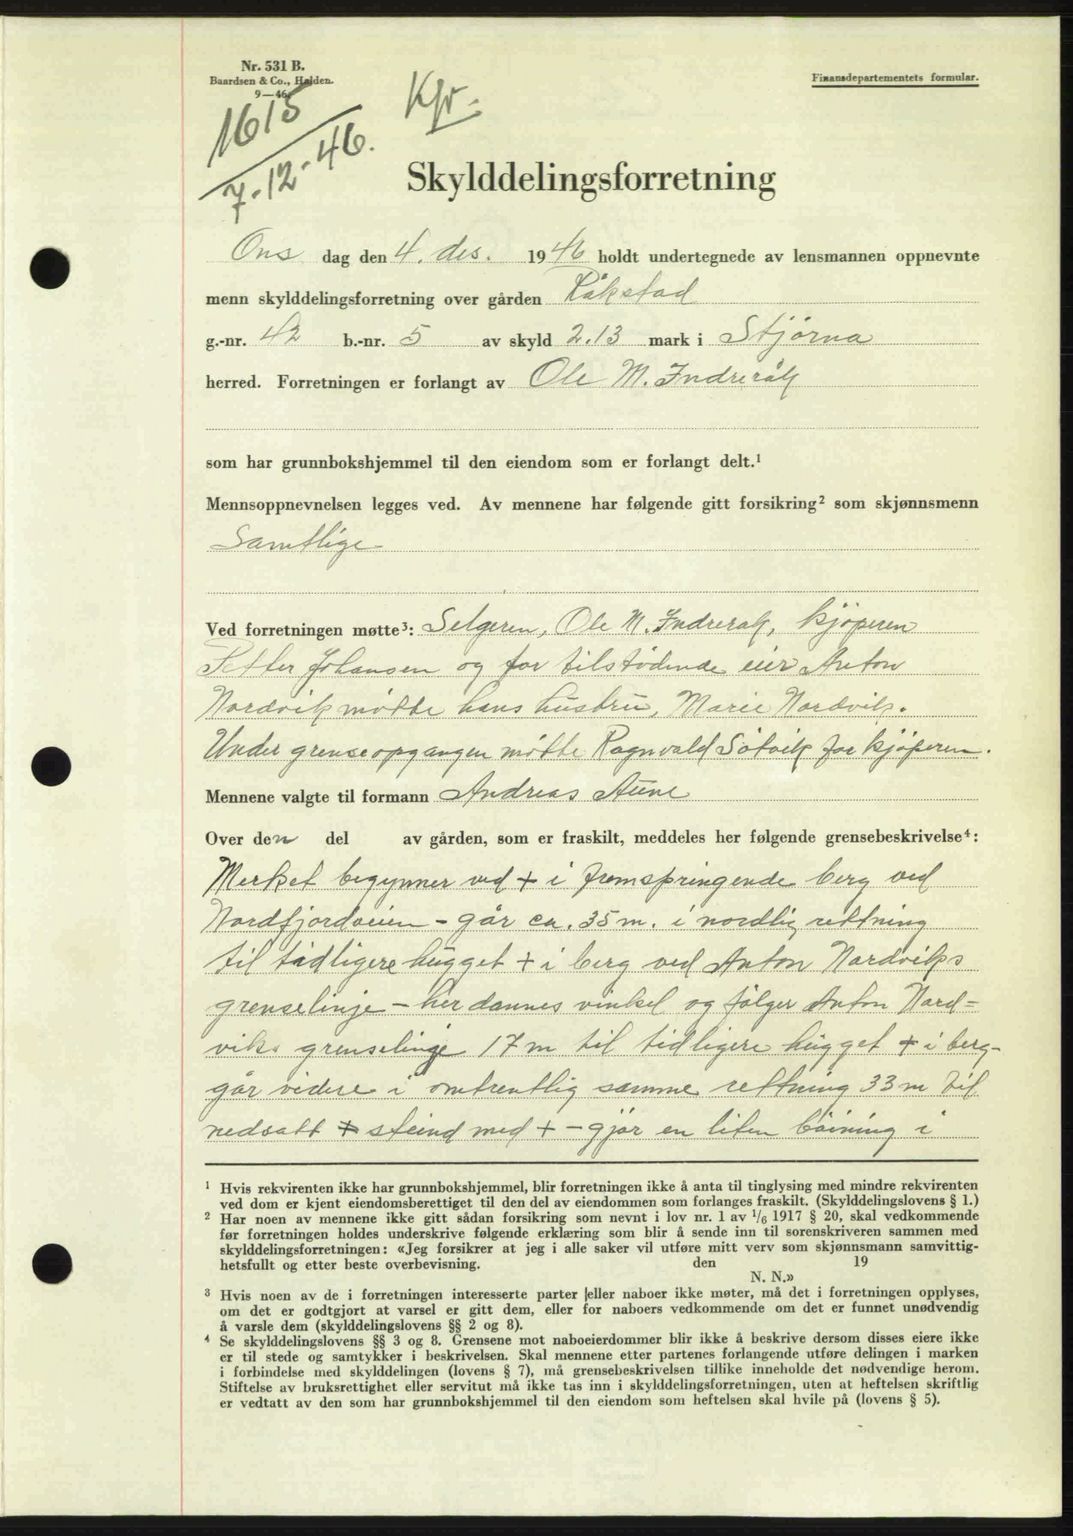 Nr. 531 B.
Baardsen & Co., Halden.
9—46.
Finansdepartementets formular.
1615
7-12-46.
Kfr.
Skylddelingsforretning
Ons dag den 4. des. 1946 holdt undertegnede av lensmannen oppnevnte
menn skylddelingsforretning over gården Råkstad
g.-nr. 42 b.-nr. 5 av skyld 2.13 mark i Stjørna
herred. Forretningen er forlangt av Ole M. Indreråk
som har grunnbokshjemmel til den eiendom som er forlangt delt.¹
Mennsoppnevnelsen legges ved. Av mennene har følgende gitt forsikring² som skjønnsmenn
Samtlige
Ved forretningen møtte³: Selgeren, Ole M. Indreråk, kjøperen
Petter Johansen og for tilstødende eier Anton
Nordvik møtte hans hustru, Marie Nordvik.
Under grenseopgangen møtte Ragnvald Søtvik for kjøperen.
Mennene valgte til formann Andreas Aune
Over den del av gården, som er fraskilt, meddeles her følgende grensebeskrivelse⁴:
Merket begynner ved + i fremspringende berg ved
Nordfjordveien - går ca. 35 m. i nordlig rettning
til tidligere hugget + i berg ved Anton Nordviks
grenselinje - her dannes vinkel og følger Anton Nord=
viks grenselinje 17 m til tidligere hugget + i berg-
går videre i omtrentlig samme rettning 33 m til
nedsatt steind med + - gjør en liten bøining i
¹ Hvis rekvirenten ikke har grunnbokshjemmel, blir forretningen ikke å anta til tinglysing med mindre rekvirenten
ved dom er kjent eiendomsberettiget til den del av eiendommen som forlanges fraskilt. (Skylddelingslovens § 1.)
² Har noen av mennene ikke gitt sådan forsikring som nevnt i lov nr. 1 av 1/6 1917 § 20, skal vedkommende
før forretningen holdes underskrive følgende erklæring som blir å sende inn til sorenskriveren sammen med
skylddelingsforretningen: «Jeg forsikrer at jeg i alle saker vil utføre mitt verv som skjønnsmann samvittig-
hetsfullt og etter beste overbevisning. den 19
N. N.»
³ Hvis noen av de i forretningen interesserte parter eller naboer ikke møter, må det i forretningen opplyses,
om det er godtgjort at varsel er gitt dem, eller for naboers vedkommende om det er funnet unødvendig
å varsle dem (skylddelingslovens §§ 2 og 8).
⁴ Se skylddelingslovens §§ 3 og 8. Grensene mot naboeierdommer blir ikke å beskrive dersom disses eiere ikke
er til stede og samtykker i beskrivelsen. Skal mennene etter partenes forlangende utføre delingen i marken
i forbindelse med skylddelingen (lovens § 7), må grensebeskrivelsen tillike inneholde det nødvendige herom.
Stiftelse av bruksrettighet eller servitut må ikke tas inn i skylddelingsforretningen, uten at heftelsen skriftlig
er vedtatt av den som har grunnbokshjemmel til den eiendom som heftelsen skal hvile på (lovens § 5).